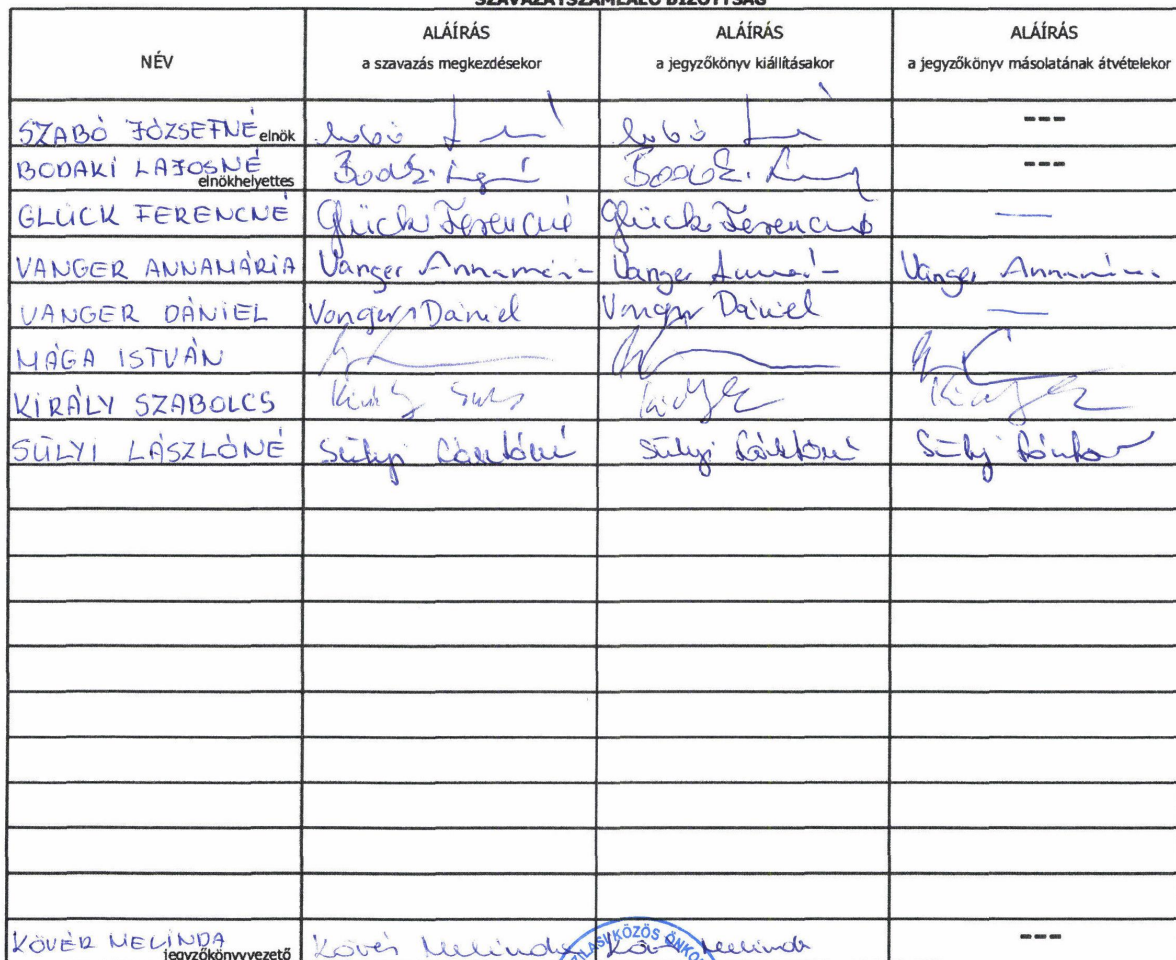 SZAVAZATSZÁMLÁLÓ BIZOTTSÁG
NÉV
ALÁÍRÁS
a szavazás megkezdésekor
ALÁÍRÁS
a jegyzőkönyv kiállításakor
ALÁÍRÁS
a jegyzőkönyv másolatának átvételekor
SZABÓ JÓZSEFNÉ elnök ---
BODAKI LAJOSNÉ elnökhelyettes ---
GLÜCK FERENCNÉ Glück Ferencné Glück Ferencné —
VANGER ANNAMÁRIA Vanger Vanger Vanger
VANGER DÁNIEL Vanger Dániel Vanger Dániel —
MÁGA ISTVÁN
KIRÁLY SZABOLCS
SÜLYI LÁSZLÓNÉ Sülyi Lászlóné Sülyi Lászlóné
KÖVÉR MELINDA jegyzőkönyvvezető Kövér Melinda Melinda ---
KÖZÖS